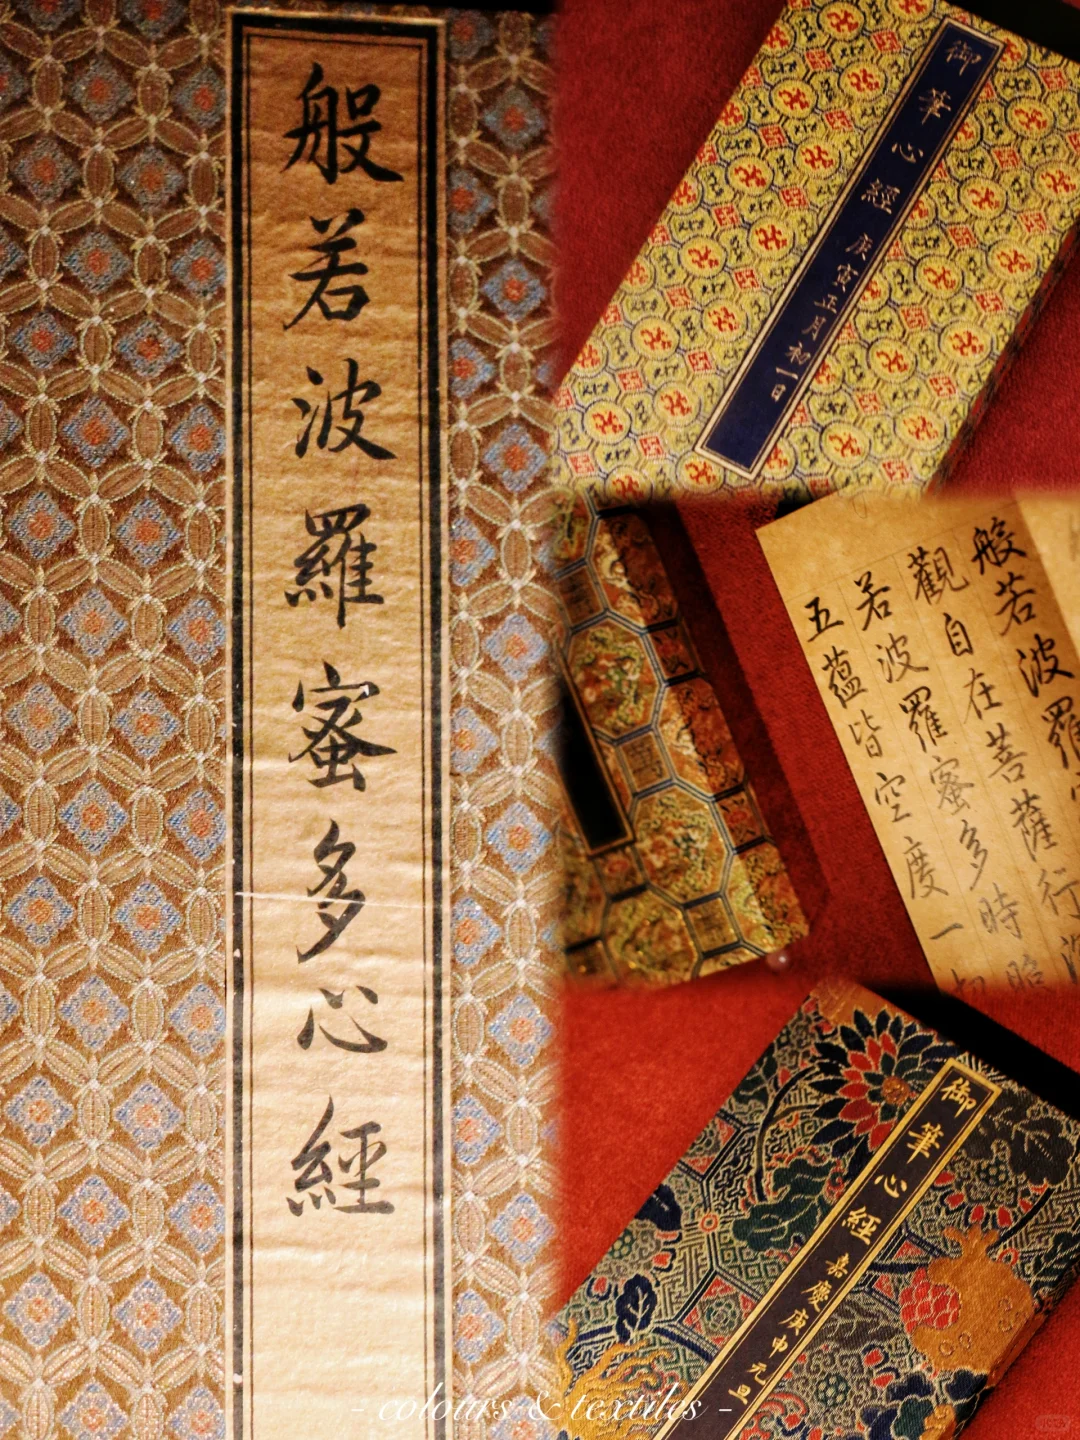 般若波羅蜜多心經
御筆心經
庚寅正月初一日
般若波羅
觀自在菩薩行深
若波羅蜜多時照
五蘊皆空度一切
御筆心經
嘉慶庚申元旦
- colours & textiles -